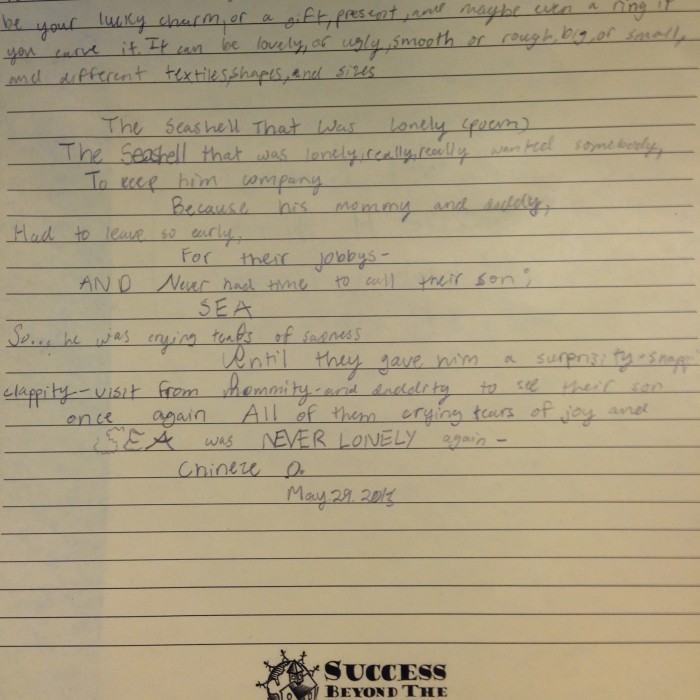 be your lucky charm, or a gift, present, and maybe even a ring if
you carve it. It can be lovely, or ugly, smooth or rough, big, or small,
and different textiles, shapes, and sizes
The Seashell That Was Lonely (poem)
The Seashell that was lonely, really, really wanted somebody,
To keep him company
Because his mommy and daddy,
Had to leave so early,
For their jobbys-
AND Never had time to call their son;
SEA
So... he was crying tears of sadness
Until they gave him a surprizity-snappi
clappity-visit from Mommity-and daddity to see their son
once again All of them crying tears of joy and
SEA was NEVER LONELY again-
Chineze O.
May 29. 2013
SUCCESS
BEYOND THE